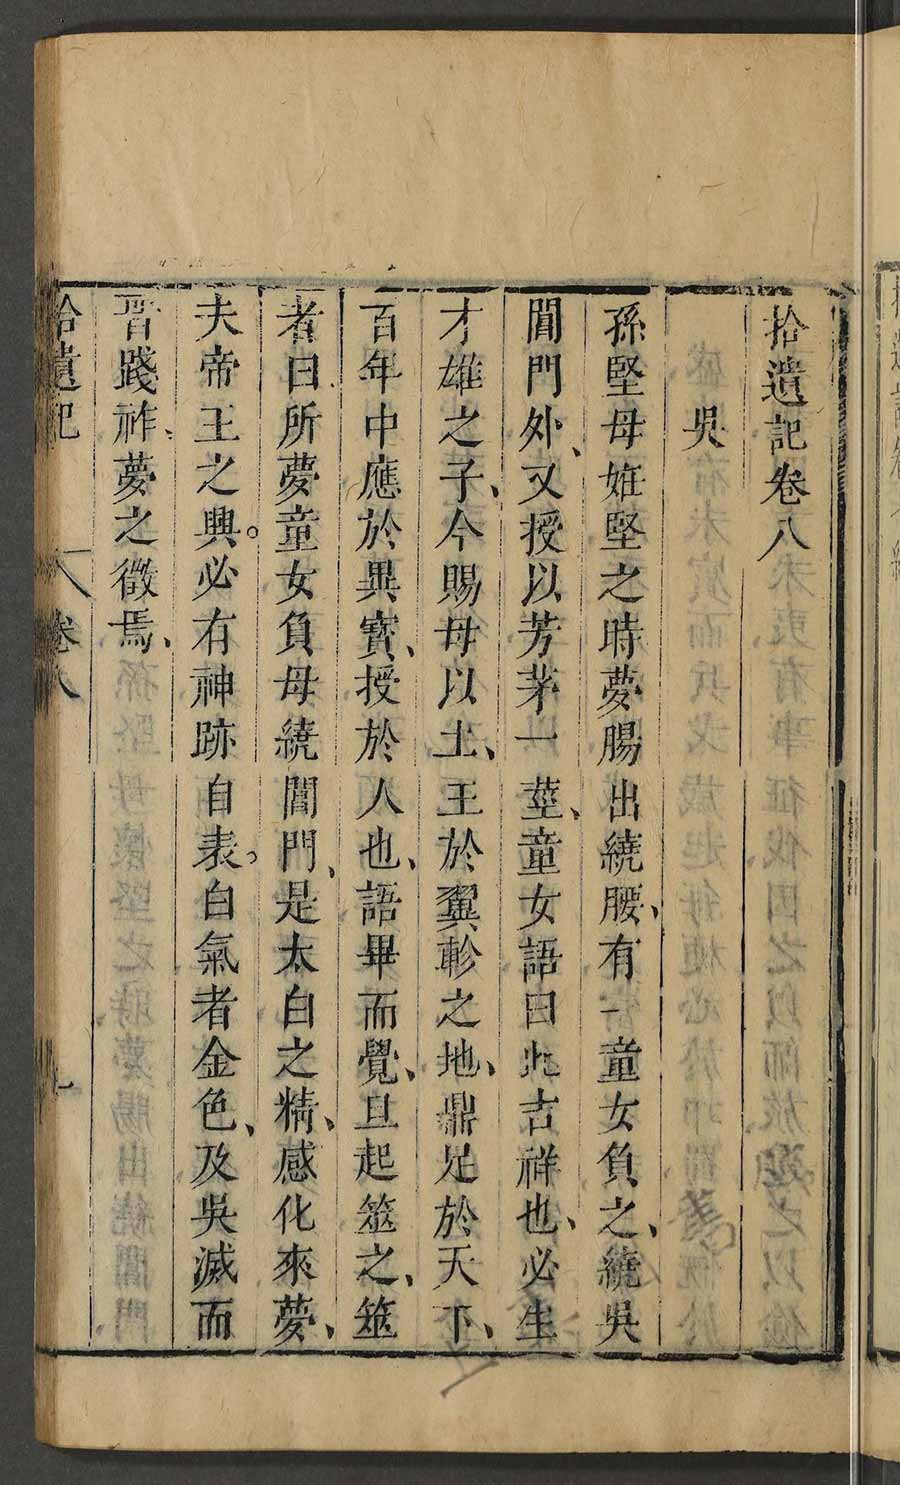 拾遺記卷八
吳
孫堅母姙堅之時夢腸出繞腰、有一童女負之、繞吳
閶門外、又授以芳茅一莖、童女語曰此吉祥也、必生
才雄之子、今賜母以土、王於翼軫之地、鼎足於天下、
百年中應於異寳、授於人也、語畢而覺、旦起筮之、筮
者曰所夢童女負母繞閶門、是太白之精、感化來夢、
夫帝王之興。必有神跡自表。白氣者金色、及吳滅而
晉踐祚、夢之徵焉、
拾遺記 卷八